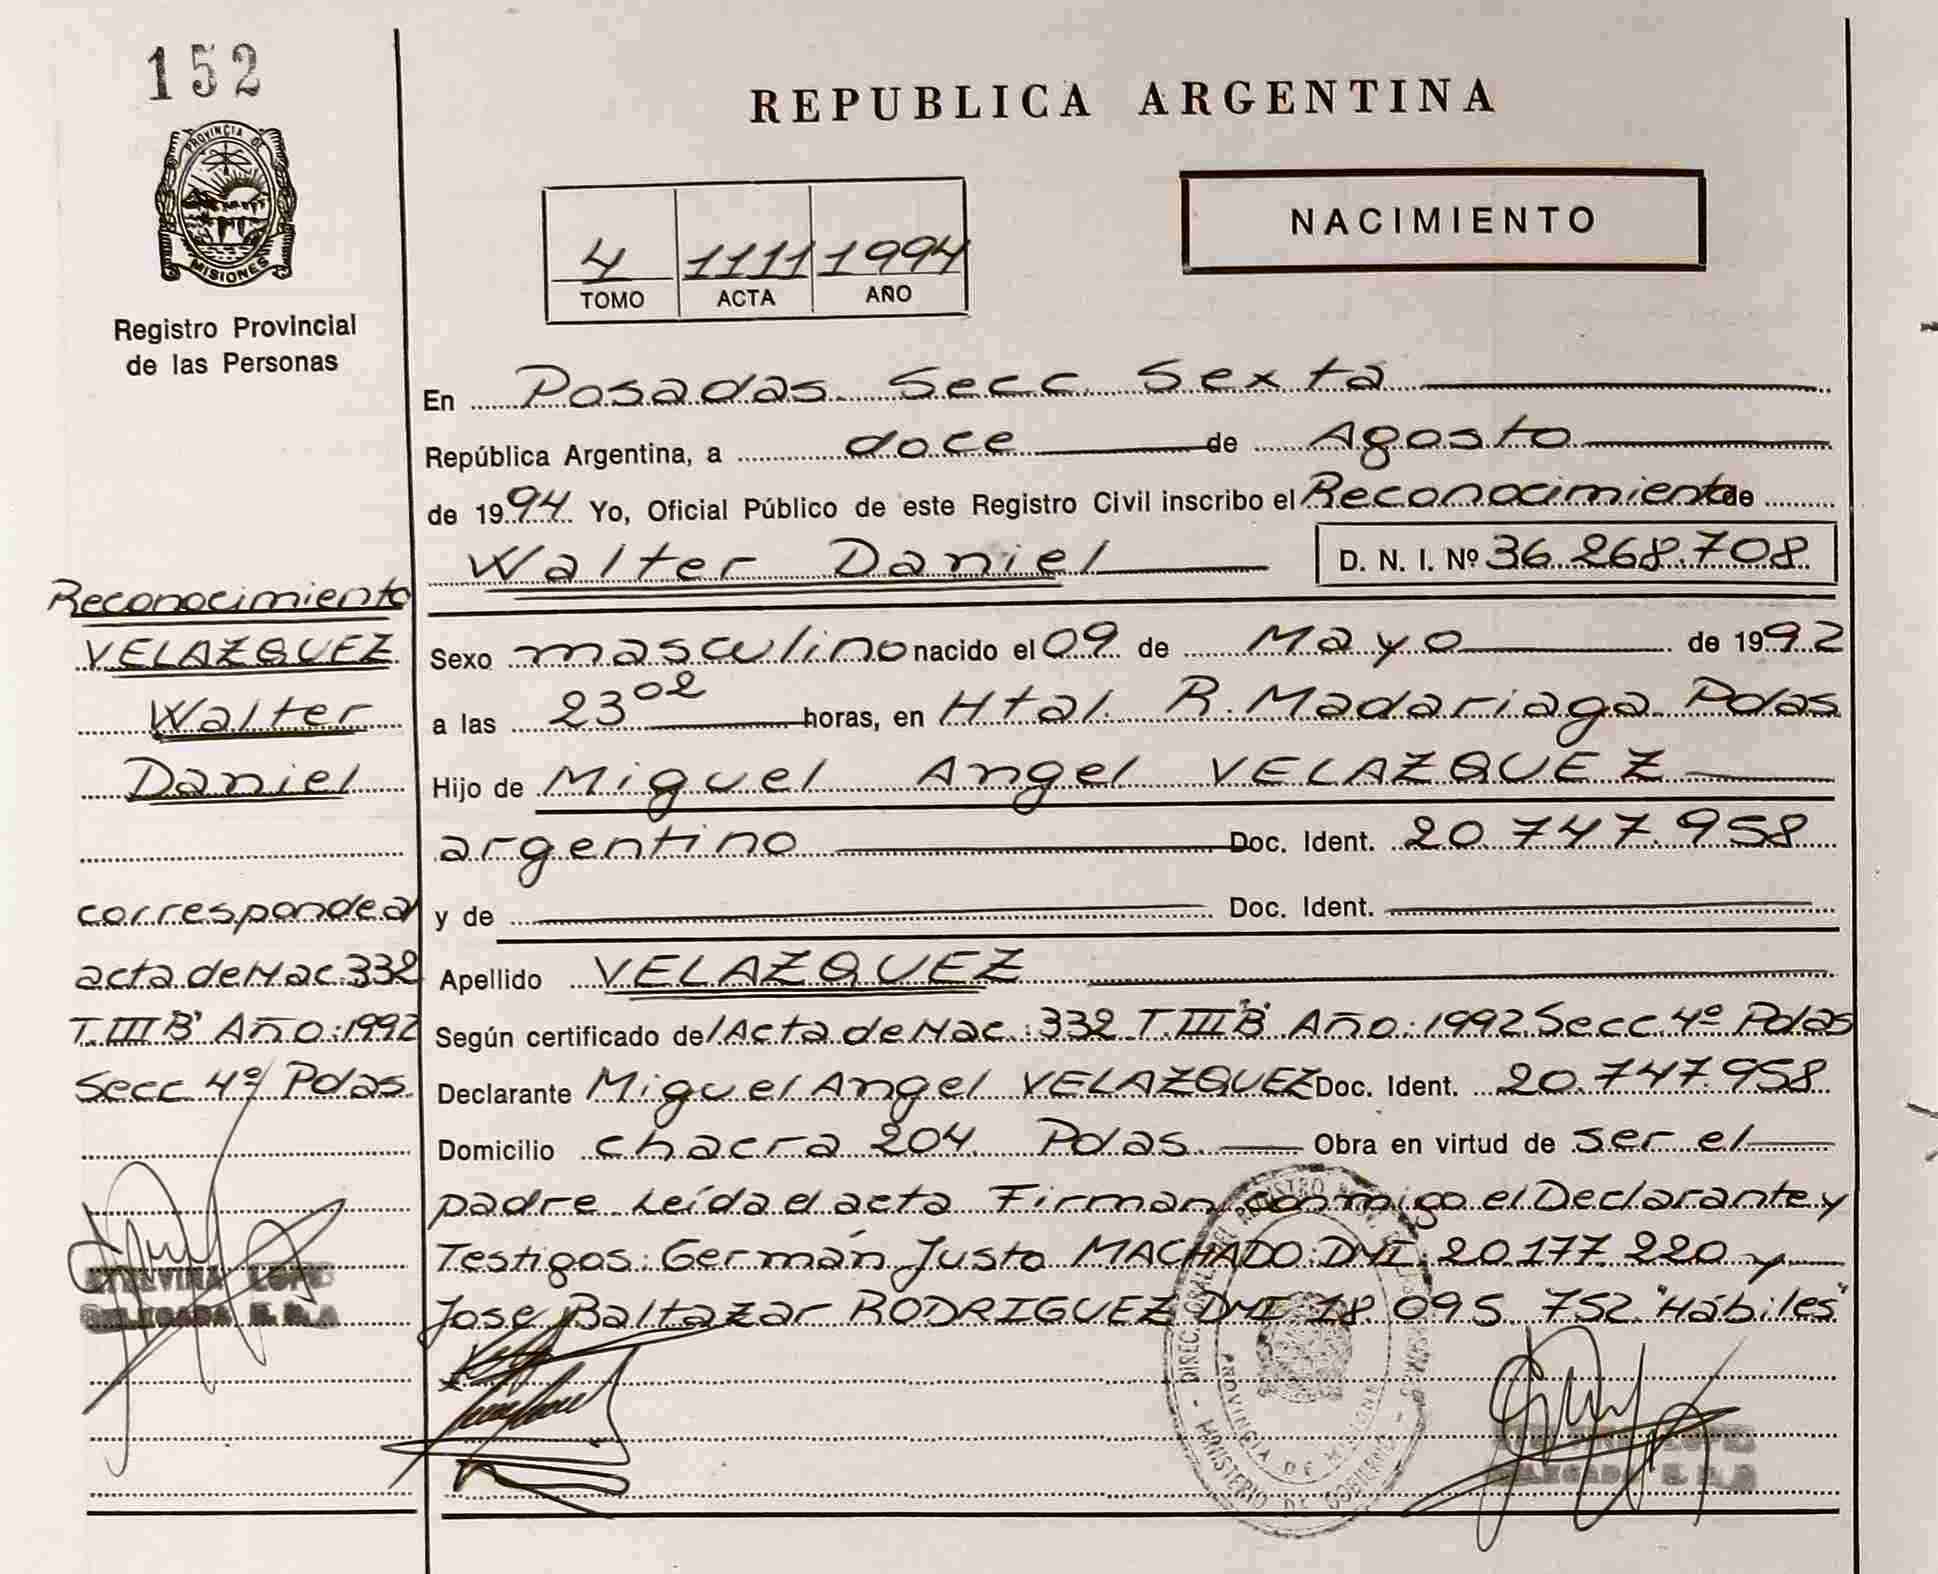 152
REPUBLICA ARGENTINA
PROVINCIA DE
MISIONES
Registro Provincial
de las Personas
NACIMIENTO
4 1111 1994
TOMO ACTA AÑO
En Posadas Secc. Sexta
República Argentina, a doce de Agosto
de 1994 Yo, Oficial Público de este Registro Civil inscribo el Reconocimiento de
Walter Daniel D. N. I. Nº 36.268.708
Sexo masculino nacido el 09 de Mayo de 1992
a las 23 02 horas, en Htal. R. Madariaga Pdas
Hijo de Miguel Angel VELAZQUEZ
argentino Doc. Ident. 20.747.958
y de Doc. Ident.
Apellido VELAZQUEZ
Según certificado de/Acta de Nac: 332 T.III"B" Año: 1992 Secc 4º Pdas
Declarante Miguel Angel VELAZQUEZ Doc. Ident. 20.747.958
Domicilio chacra 204 Pdas. Obra en virtud de ser el
padre Leída el acta Firman conmigo el Declarante y
Testigos: Germán Justo MACHADO: DNI. 20.177.220 y
Jose Baltazar RODRIGUEZ DNI 18.095.752 "Hábiles"
Reconocimiento
VELAZQUEZ
Walter
Daniel
corresponde al
acta de Nac. 332
T.III"B" Año: 1992
Secc 4º Pdas.
LOPEZ
DELEGADA
PROVINCIA DE MISIONES
MINISTERIO DE GOBIERNO
LOPEZ
DELEGADA